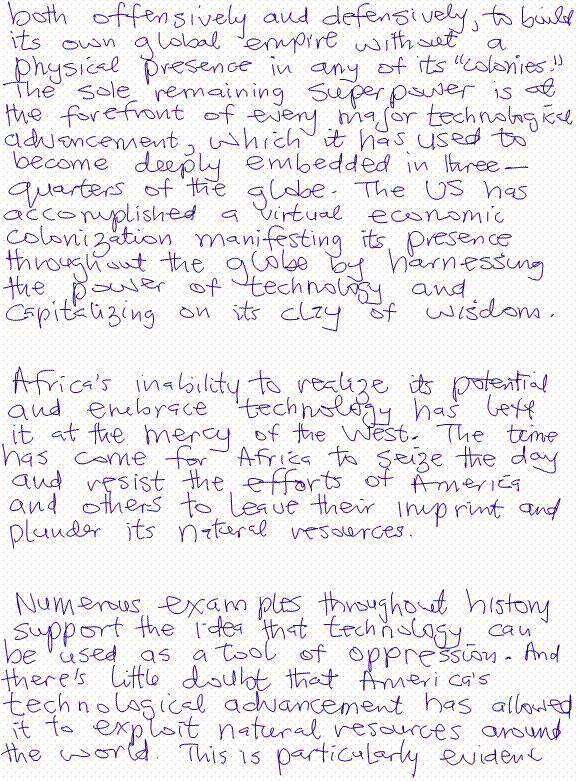 both offensively and defensively, to build
its own global empire without a
physical presence in any of its "colonies."
The sole remaining superpower is at
the forefront of every major technological
advancement, which it has used to
become deeply embedded in three-
quarters of the globe. The US has
accomplished a virtual economic
colonization manifesting its presence
throughout the globe by harnessing
the power of technology and
capitalizing on its clay of wisdom.
Africa's inability to realize its potential
and embrace technology has left
it at the mercy of the West. The time
has come for Africa to seize the day
and resist the efforts of America
and others to leave their imprint and
plunder its natural resources.
Numerous examples throughout history
support the idea that technology can
be used as a tool of oppression. And
there's little doubt that America's
technological advancement has allowed
it to exploit natural resources around
the world. This is particularly evident